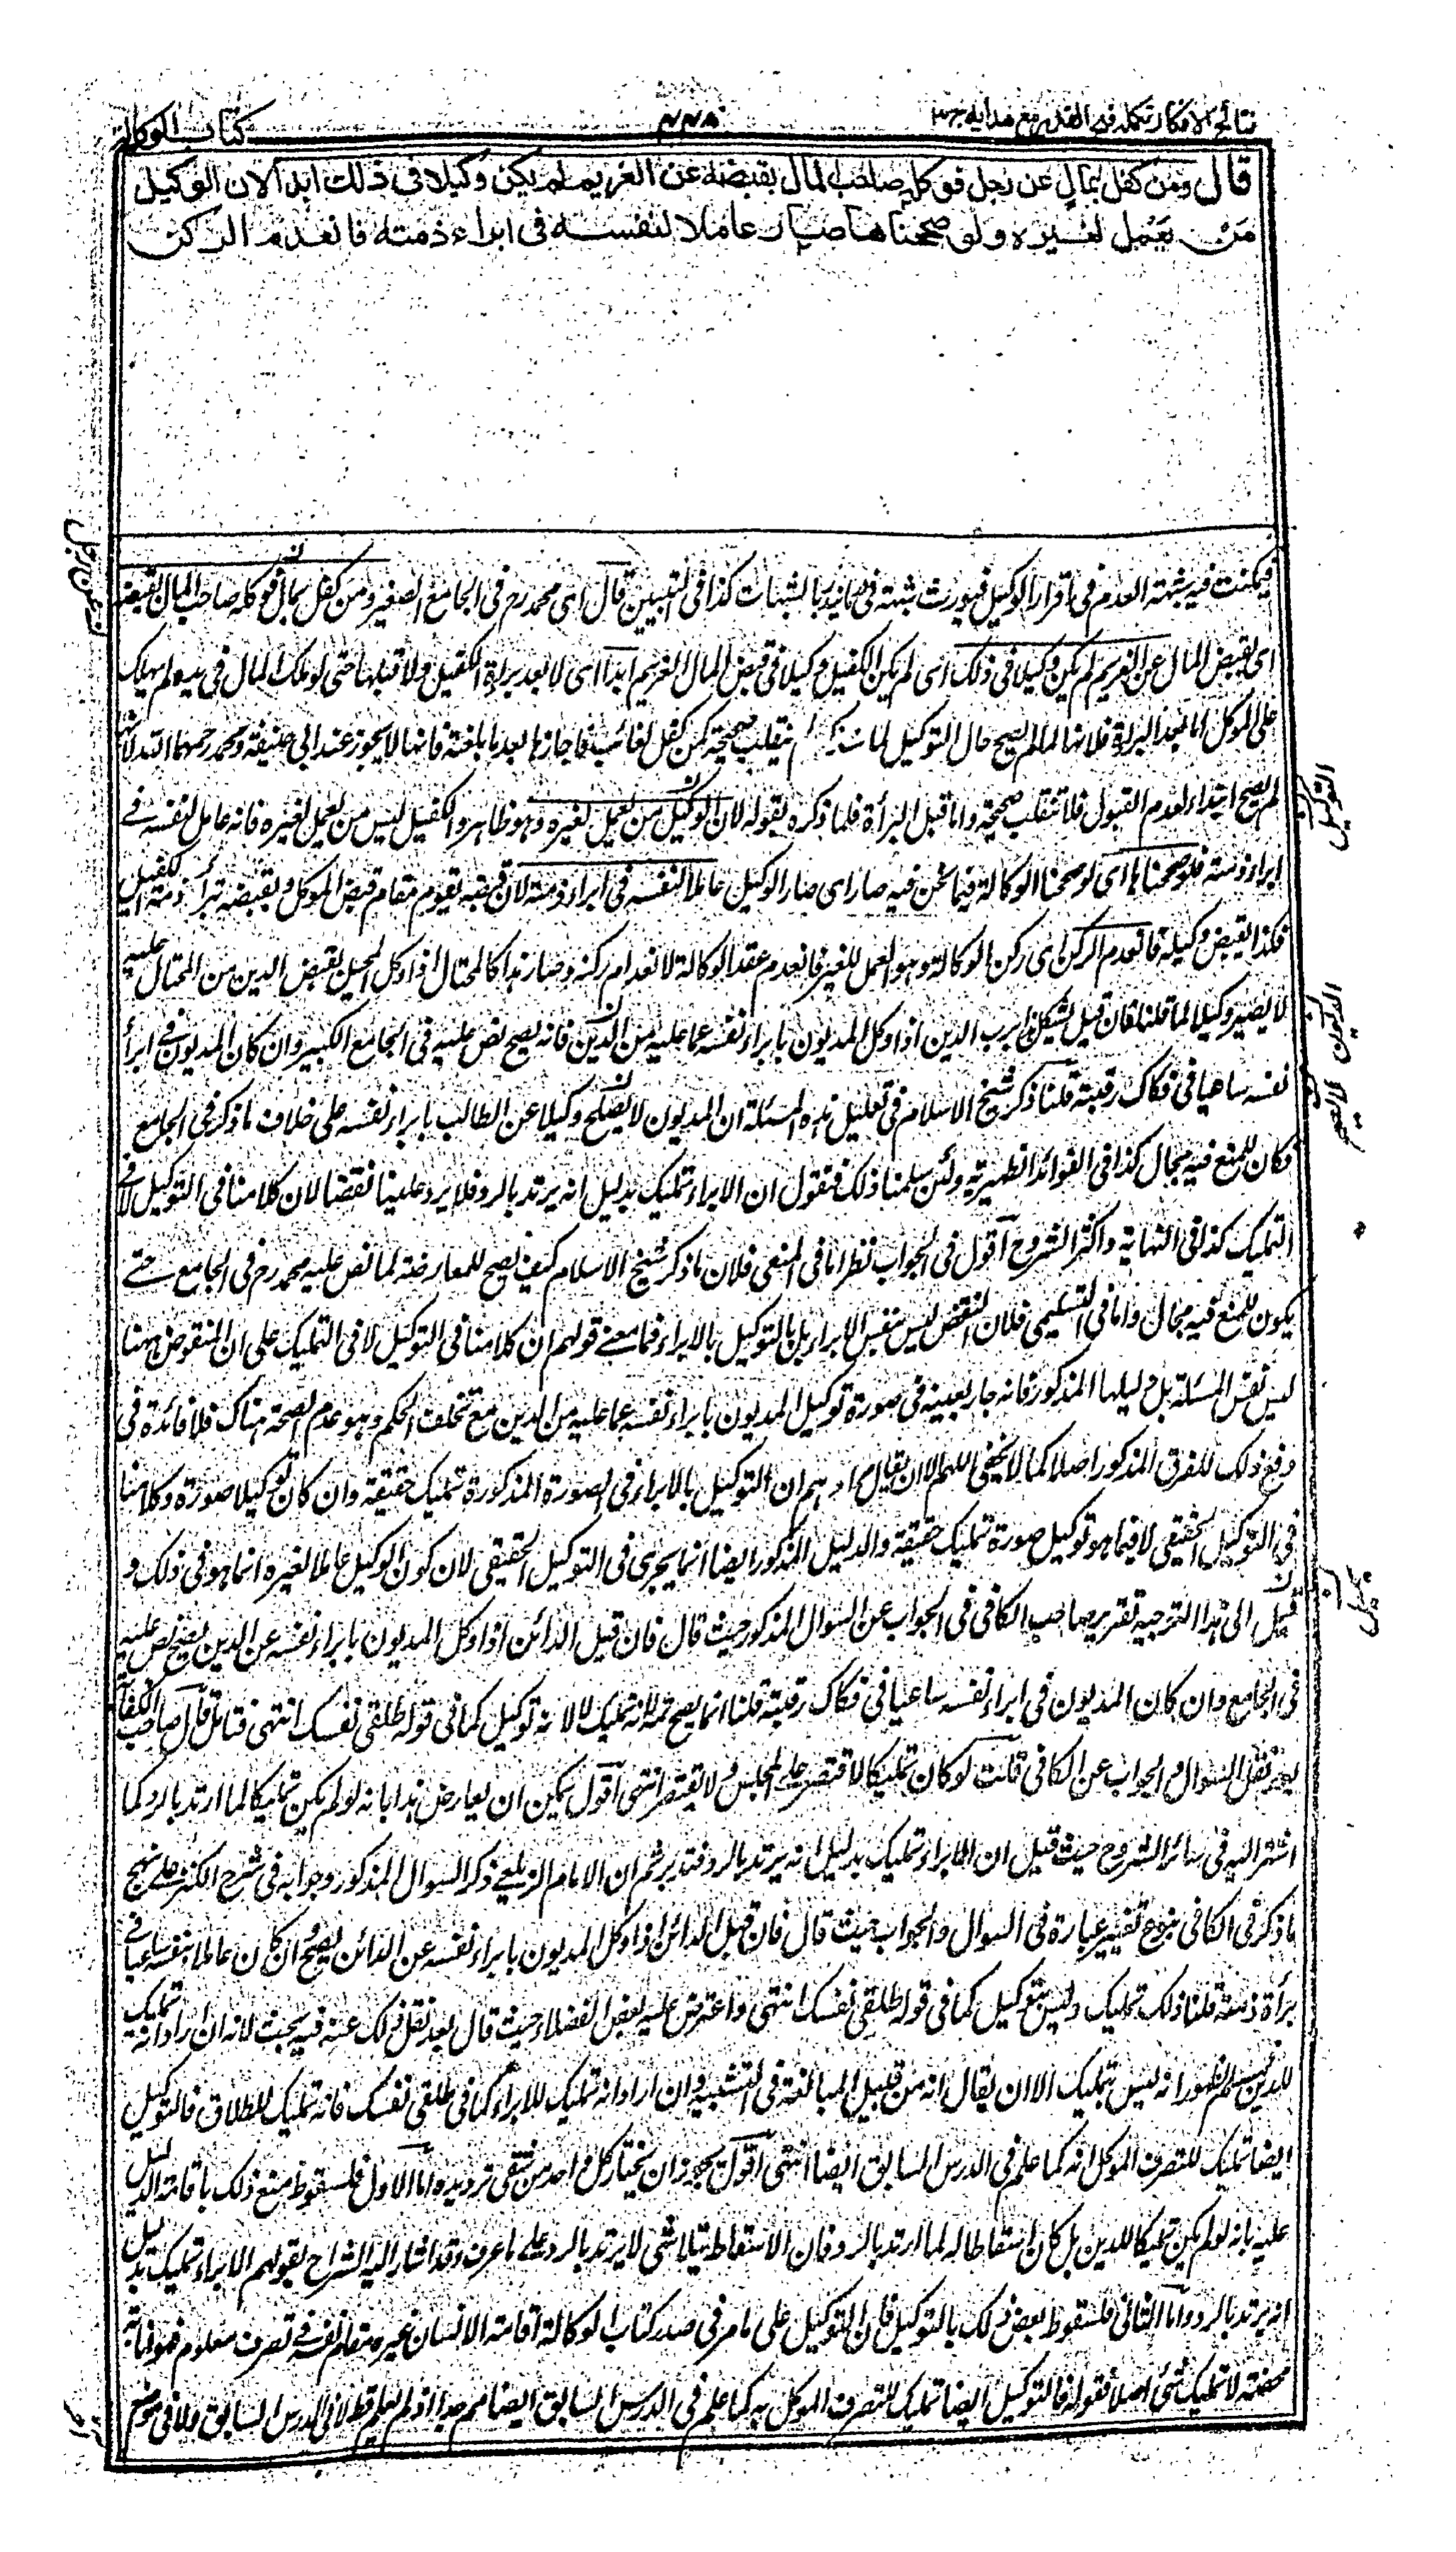 نتائج الافكار تكمله فتح القدير مع هدايه ج٣
٢٢٨
كتاب الوكالة
قال ومن كفل بمال عن رجل فوكله صاحب المال بقبضه عن الغريم لم يكن وكيلا في ذلك ابدا لان الوكيل
من يعمل لغيره ولو صححناها صار عاملا لنفسه في ابراء ذمته فانعدم الركن
فيمكنت فيه شبهة العدم في اقرار الوكيل فيورث شبهة في ما يندرئ بالشبهات كذا في التبيين قال اي محمد رح في الجامع الصغير ومن كفل بمال فوكله صاحب المال بقبضه
اي بقبض المال عن الغريم لم يكن وكيلا في ذلك اي لم يكن الكفيل وكيلا في قبض المال الغريم ابدا اي لا بعد براءة الكفيل ولا قبلها حتى لو هلك المال في يده لم يهلك
على الموكل اما بعد البراءة فلانها لما لم يصح حال التوكيل لما لم ينقلب صحيحة كمن كفل لغائب فاجازها بعد ما بلغته فانها لا يجوز عند ابي حنيفة ومحمد رحمهما الله لانها
لم يصح ابتداء لعدم القبول فلا تنقلب صحيحة واما قبل البرأة فلما ذكره بقوله لان الوكيل من يعمل لغيره وهو ظاهر والكفيل ليس من يعمل لغيره فانه عامل لنفسه في
ابراء ذمته فلو صححناها اي لو صححنا الوكالة فيما نحن فيه صار اي صار الوكيل عاملا لنفسه في ابراء ذمته لان قبضه يقوم مقام قبض الموكل وبقبضه تبرأ ذمة الكفيل
فكذا بقبض وكيله فانعدم الركن اي ركن الوكالة وهو العمل للغير فانعدم عقد الوكالة لانعدام ركنه وصار هذا كالمحتال اذا وكل المحيل بقبض الدين من المحتال عليه
لا يصير وكيلا لما قلنا فان قيل يشكل هذا برب الدين اذا وكل المديون بابراء نفسه عما عليه من الدين فانه يصح نص عليه في الجامع الكبير وان كان المديون في ابرأ
نفسه ساعيا في فكاك رقبته قلنا ذكر شيخ الاسلام في تعليل هذه المسئلة ان المديون لا يصلح وكيلا عن الطالب بابراء نفسه على خلاف ما ذكر في الجامع
فكان للمنع فيه مجال كذا في الفوائد الظهيرية ولئن سلمنا ذلك فنقول ان الابراء تمليك بدليل انه يرتد بالرد فلا يرد علينا نقضا لان كلامنا في التوكيل لا في
التمليك كذا في النهاية واكثر الشروح اقول في الجواب نظر اما في المنعي فلان ما ذكر شيخ الاسلام كيف يصح للمعارضة لما نص عليه محمد رح في الجامع حتى
يكون للمنع فيه مجال واما في التسليمي فلان النقض ليس بنفس الابراء بل بالتوكيل بالابراء فما معنى قولهم ان كلامنا في التوكيل لا في التمليك على ان المنقوض ههنا
ليس نفس المسئلة بل دليلها المذكور فانه جار بعينه في صورة توكيل المديون بابراء نفسه عما عليه من الدين مع تخلف الحكم وهو عدم الصحة هناك فلا فائدة في
دفع ذلك للفرق المذكور اصلا كما لا يخفى اللهم الا ان يقال مرادهم ان التوكيل بالابراء في الصورة المذكورة تمليك حقيقة وان كان توكيلا صورة وكلامنا
في التوكيل الحقيقي لا فيما هو توكيل صورة تمليك حقيقة والدليل المذكور ايضا انما يجري في التوكيل الحقيقي لان كون الوكيل عاملا لغيره انما هو في ذلك و
قيل الى هذا التوجيه تقرير صاحب الكافي في الجواب عن السوال المذكور حيث قال فان قيل الدائن اذا وكل المديون بابراء نفسه عن الدين يصح نص عليه
في الجامع وان كان المديون في ابراء نفسه ساعيا في فكاك رقبته قلنا انما يصح ثمه لانه تمليك لا لانه توكيل كما في قوله طلقي نفسك انتهى فتامل قال صاحب الكفاية
بعد نقل السوال والجواب عن الكافي قلت لو كان تمليكا لاقتصر على المجلس ولا يقتصر انتهى اقول يمكن ان يعارض هذا بانه لو لم يكن تمليكا لما ارتد بالرد كما
اشير اليه في سائر الشروح حيث قيل ان الابراء تمليك بدليل انه يرتد بالرد فتدبر ثم ان الامام الزيلعي ذكر السوال المذكور وجوابه في شرح الكنز على نهج
ما ذكر في الكافي بنوع تغيير عبارة في السوال والجواب حيث قال فان قيل الدائن اذا وكل المديون بابراء نفسه عن الدائن يصح ان كان عاملا لنفسه ساعيا في
برأة ذمته قلنا ذلك تمليك وليس بتوكيل كما في قوله طلقي نفسك انتهى واعترض عليه بعض الفضلاء حيث قال بعد نقل ذلك عنه فيه بحث لانه ان اراد انه تمليك
للدين فليسلم لظهور انه ليس بتمليك الا ان يقال انه من قبيل المبالغة في التشبيه وان اراد انه تمليك للابراء كما في طلقي نفسك فانه تمليك للطلاق فالتوكيل
ايضا تمليك للتصرف الموكل انه كما علم في الدرس السابق ايضا انتهى اقول يجوز ان يختار كل واحد من شقي ترديده اما الاول فلسقوط منع ذلك باقامة الدليل
عليه بانه لو لم يكن تمليكا للدين بل كان اسقاطا له لما ارتد بالرد فان الاسقاط يتلاشى لا يرتد بالرد على ما عرف وقد اشار اليه الشراح بقولهم الابراء تمليك بدليل
انه يرتد بالرد واما الثاني فلسقوط بعض ذلك بالتوكيل فان التوكيل على ما مر في صدر كتاب الوكالة اقامة الانسان غيره مقام نفسه في تصرف معلوم فهو انابة
محضة لا تمليك شئ اصلا فقوله فالتوكيل ايضا تمليك للتصرف الموكل به كما علم في الدرس السابق ايضا مم جدا اذ لم يعلم قط لا في الدرس السابق ولا في موضع